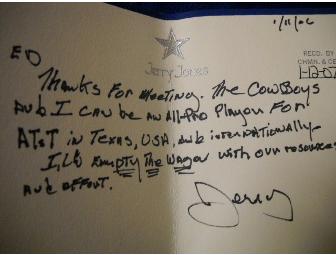 1/11/06
RECD. BY
CHMN. & CE
1-12-07
Jerry Jones
ED
Thanks For meeting. The Cowboys
and I can be an All-Pro Player For
AT&T in Texas, USA, and internationally-
I'll Empty The Wagon with our resources
and effort.
Jerry